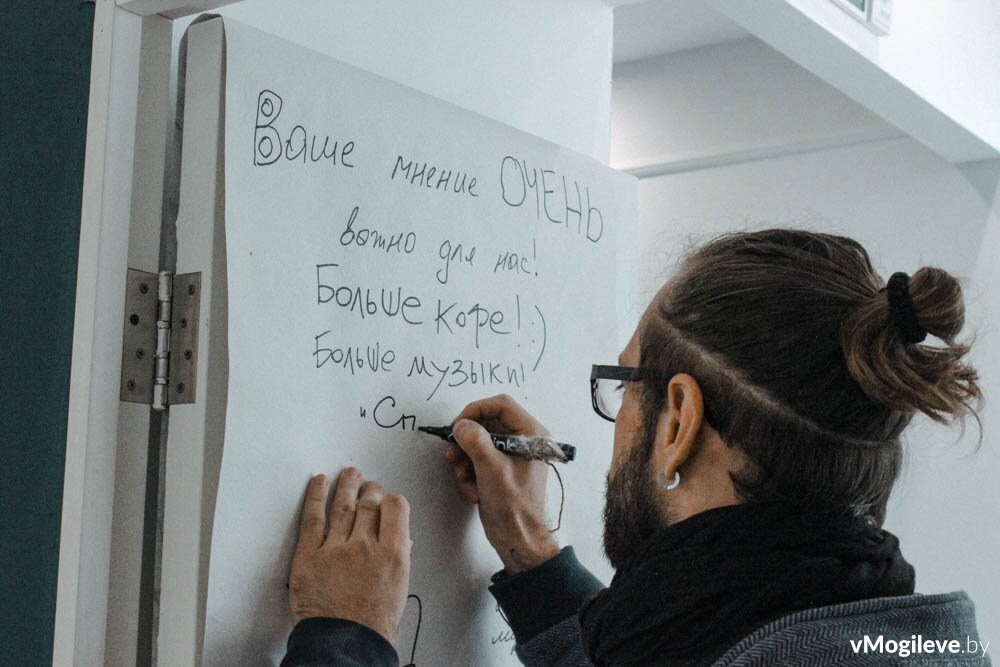 Ваше мнение ОЧЕНЬ
важно для нас!
Больше кофе! :)
Больше музыки!
"Сп
vMogileve.by